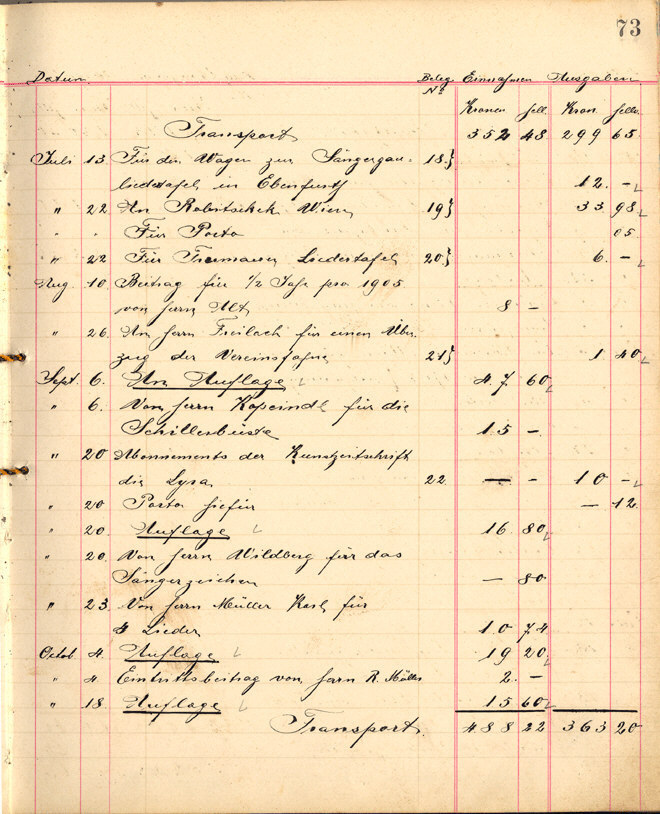 73
Datum Beleg Einnahmen Ausgaben
No
Kronen hell. Kron. heller
Transport 352 48 299 65
Juli 13 Für den Wagen zur Sängergau- 18}
liedertafel in Ebenfurth 12. –
" 22 An Robitschek Wien 19} 33 98
" " Für Porto 05
" 22 Für Liedertafel 20} 6. –
Aug. 10 Beitrag für 1/2 Jahr pro 1905
von Herrn Alt 8 –
" 26. An Herrn Freilach für einen Über-
zug der Vereinsfahne 21} 1 40
Sept. 6. An Auflage 47 60
" 6. Von Herrn für die
Schillerbüste 15 –
" 20 Abonnements der Kunstzeitschrift
die Lyra 22 — – 10 –
" 20 Porto hiefür – 12
" 20 Auflage 16 80
" 20. Von Herrn Wildberg für das
Sängerzeichen – 80
" 23. Von Herrn Müller Karl für
Lieder 10 74
Octob. 4. Auflage 19 20
" 4 Eintrittsbeitrag von Herrn R. Müller 2. –
" 18 Auflage 15 60
Transport. 488 22 363 20